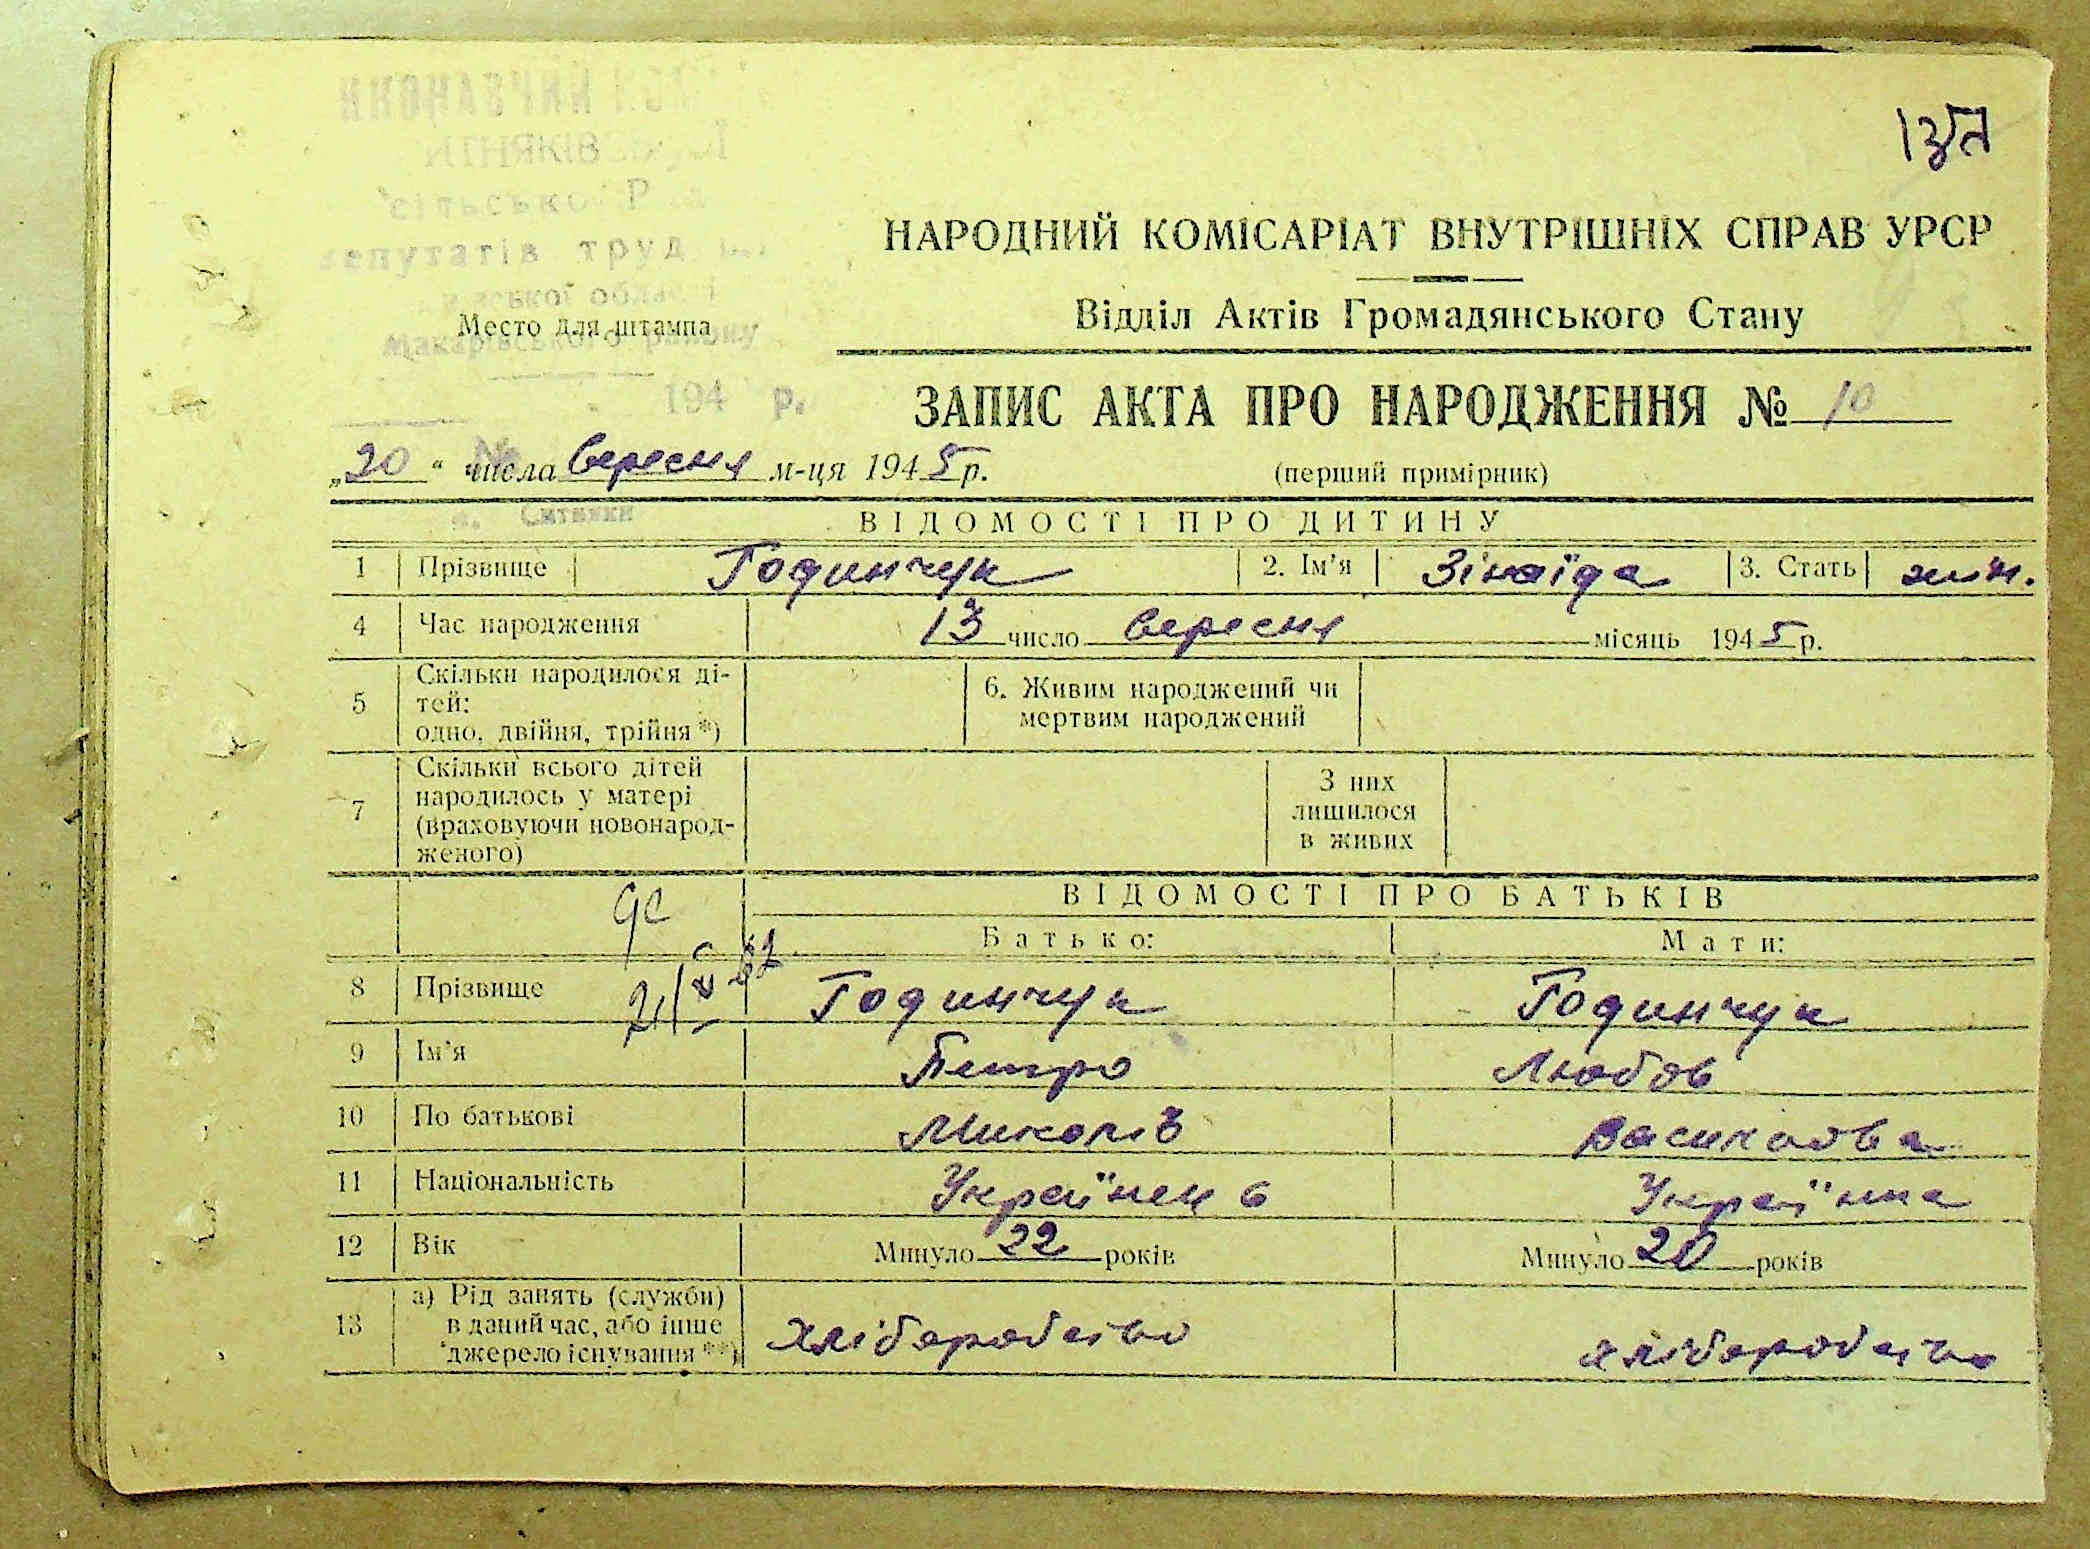 сільської
депутатів труд
Місто для штампа
Макарівського району
194 р.
НАРОДНИЙ КОМІСАРІАТ ВНУТРІШНІХ СПРАВ УРСР
Відділ Актів Громадянського Стану
ЗАПИС АКТА ПРО НАРОДЖЕННЯ № 10
„20“ числа вересня м-ця 1945 р.
(перший примірник)
с. Ситняки
ВІДОМОСТІ ПРО ДИТИНУ
1 Прізвище Годинчук 2. Ім’я Зінаїда 3. Стать жін.
4 Час народження 13 число вересня місяць 1945 р.
5 Скільки народилося ді-
тей:
одно, двійня, трійня *)
6. Живим народжений чи
мертвим народжений
7 Скільки всього дітей
народилось у матері
(враховуючи новонарод-
женого)
З них
лишилося
в живих
ВІДОМОСТІ ПРО БАТЬКІВ
Батько: Мати:
8 Прізвище Годинчук Годинчук
9 Ім’я Петро Любов
10 По батькові Миколів Василовва
11 Національність Українець Українка
12 Вік Минуло 22 років Минуло 20 років
13 а) Рід занять (служби)
в даний час, або інше
джерело існування **)
хліборобство хліборобство